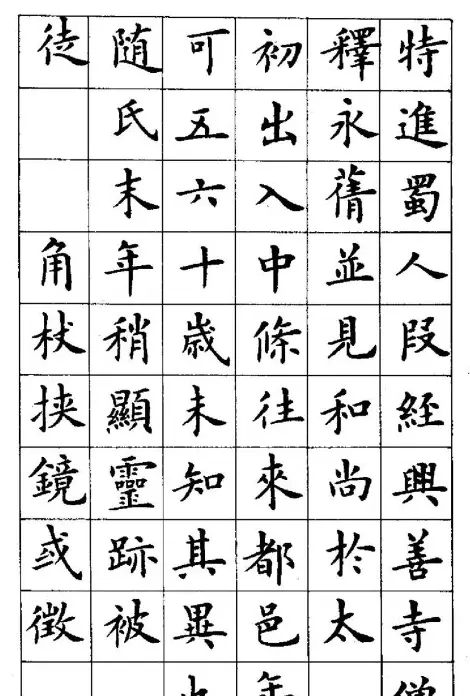 特進蜀人段經興善寺
釋永蒨並見和尚於太
初出入中條往來都邑
可五六十歳未知其異
随氏末年稍顯靈跡被
徒角杖挟鏡或徵